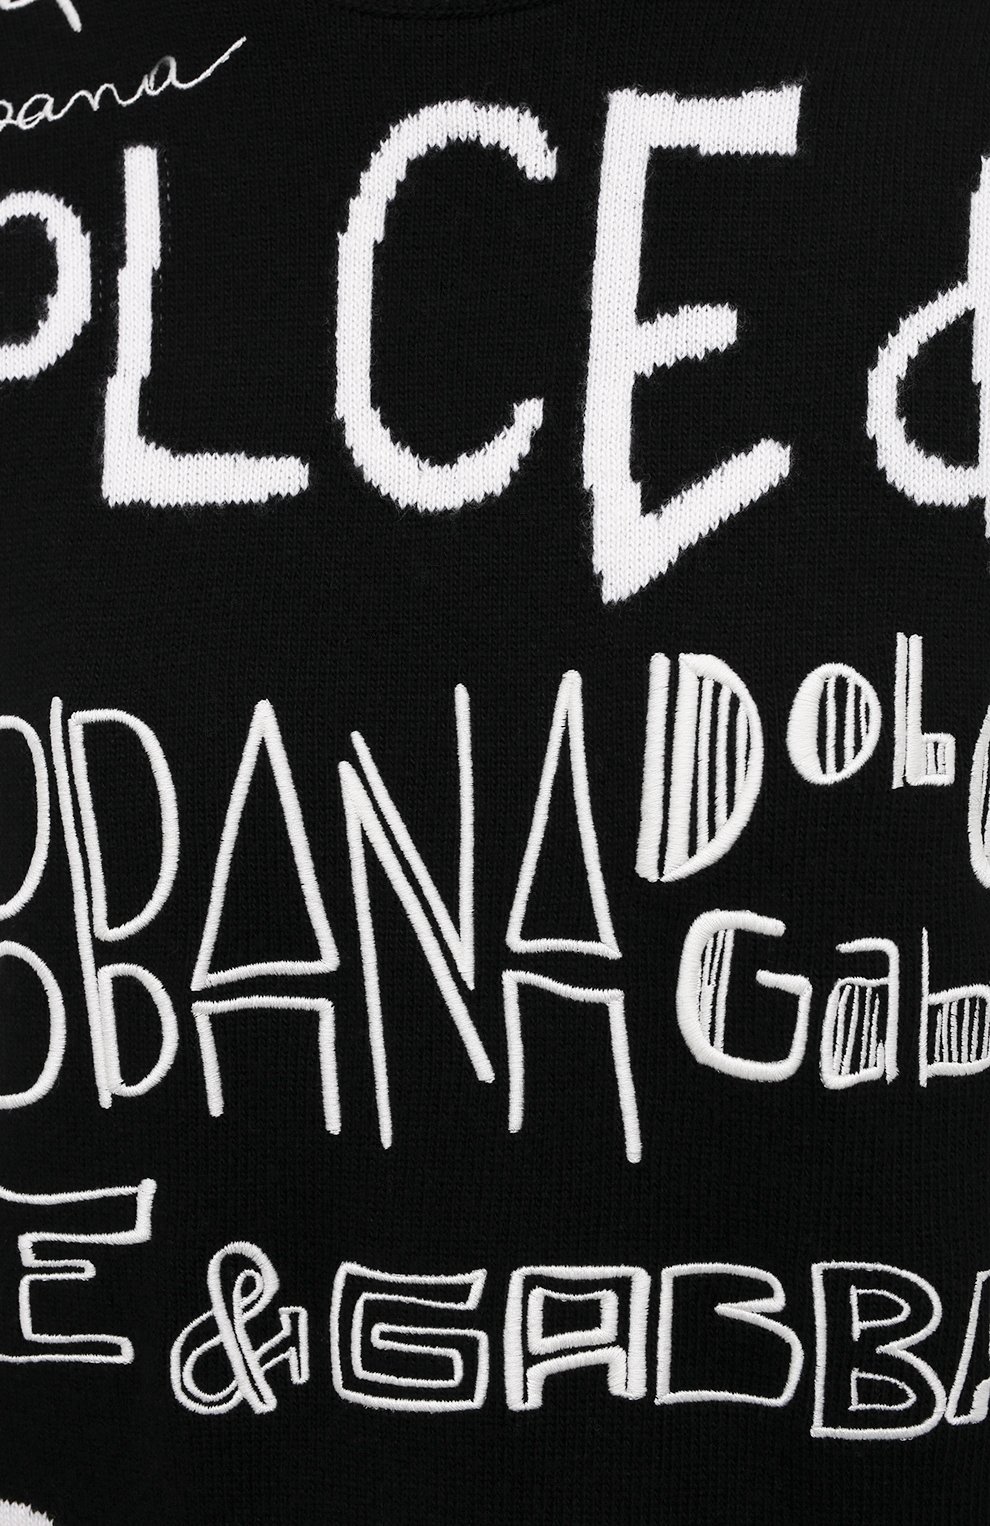 bana
OLCE &
BBANA
Dol
Gab
E & GABBA